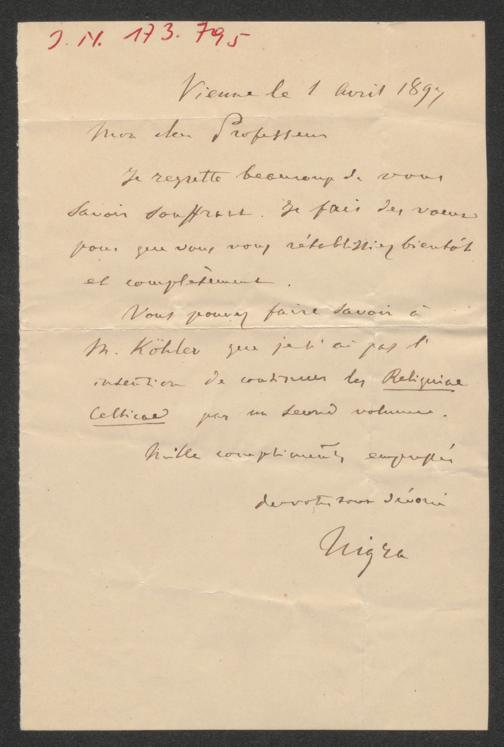 J. N. 173.795
Vienne le 1 avril 1897
Mon cher Professeur
Je regrette beaucoup de vous
savoir souffrant. Je fais des voeux
pour que vous vous rétablissiez bientôt
et complètement.
Vous pouvez faire savoir à
M. Köhler que je n'ai pas l'
intention de continuer les Reliquiae
Celticae par un second volume.
Mille compliments empressés
de votre
Nigra